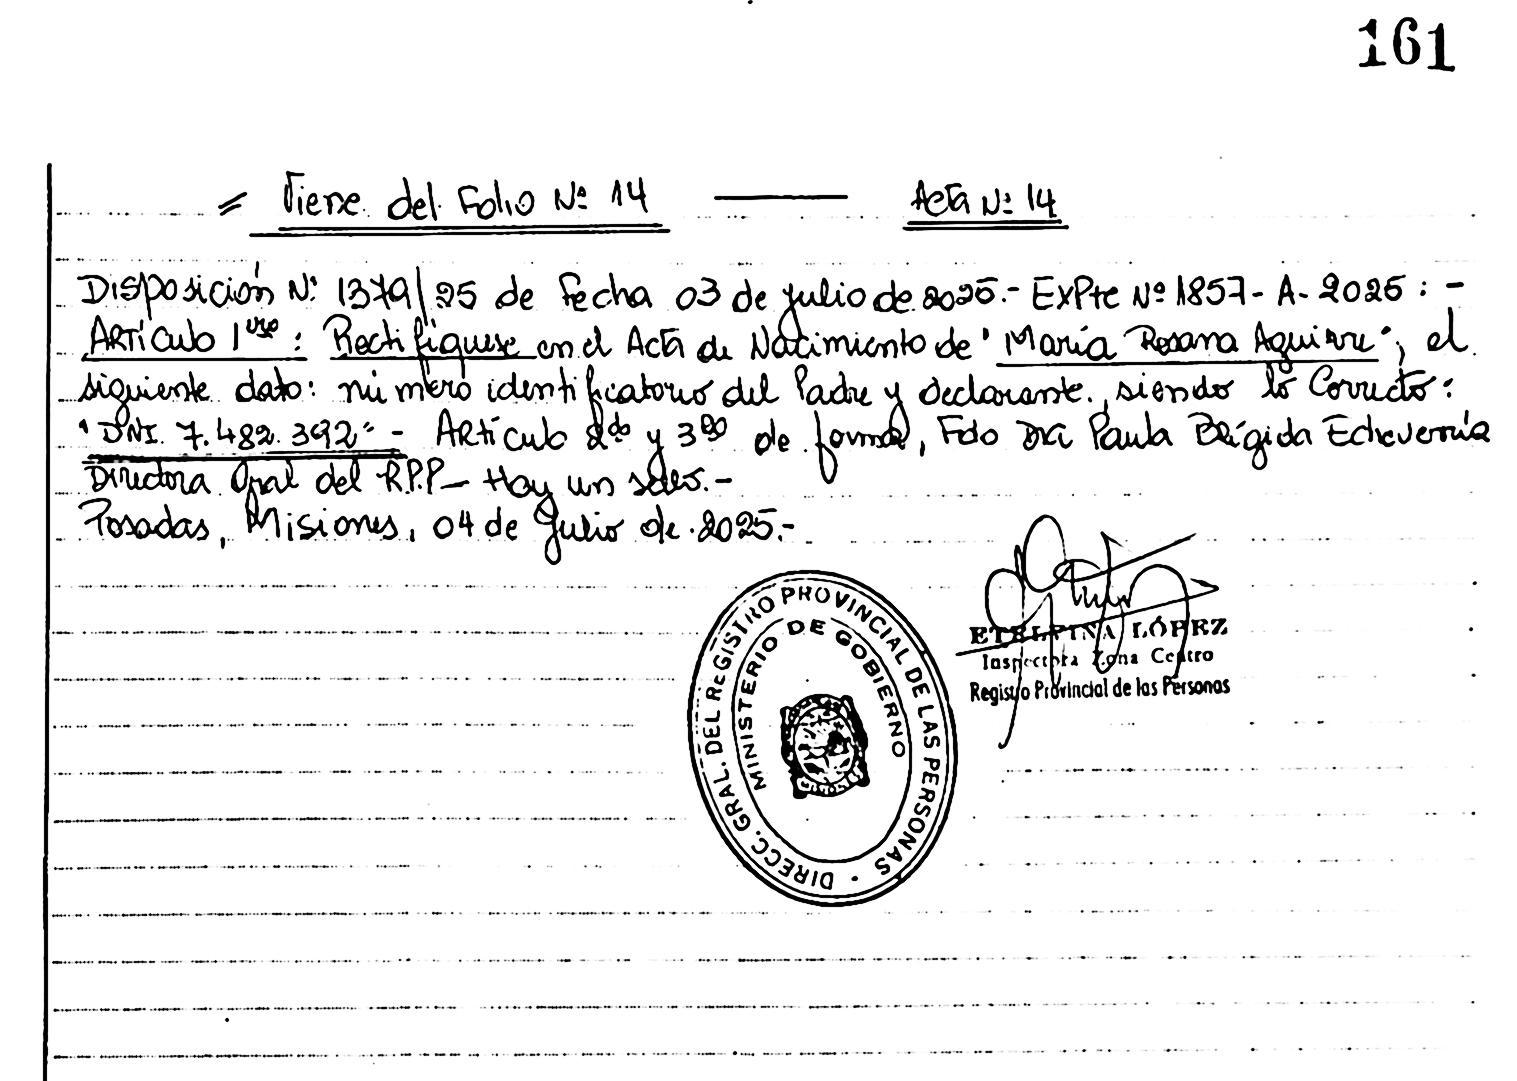 161
= Viene del Folio Nº 14 —— Acta Nº 14
Disposición Nº 1379/25 de fecha 03 de julio de 2025.- ExPte Nº 1857-A-2025:-
Artículo 1ero: Rectifíquese en el Acta de Nacimiento de "María Rosana Aguirre"; el
siguiente dato: número identificatorio del Padre y declarante, siendo lo Correcto:
"DNI. 7.482.392"- Artículo 2do y 3ro de forma, Fdo Dra Paula Brígida Echeverría
Directora Gral del R.P.P- Hay un sello.-
Posadas, Misiones, 04 de Julio de 2025.-
DIRECC. GRAL. DEL REGISTRO PROVINCIAL DE LAS PERSONAS
MINISTERIO DE GOBIERNO
ETELVINA LÓPEZ
Inspectora Zona Centro
Registro Provincial de las Personas